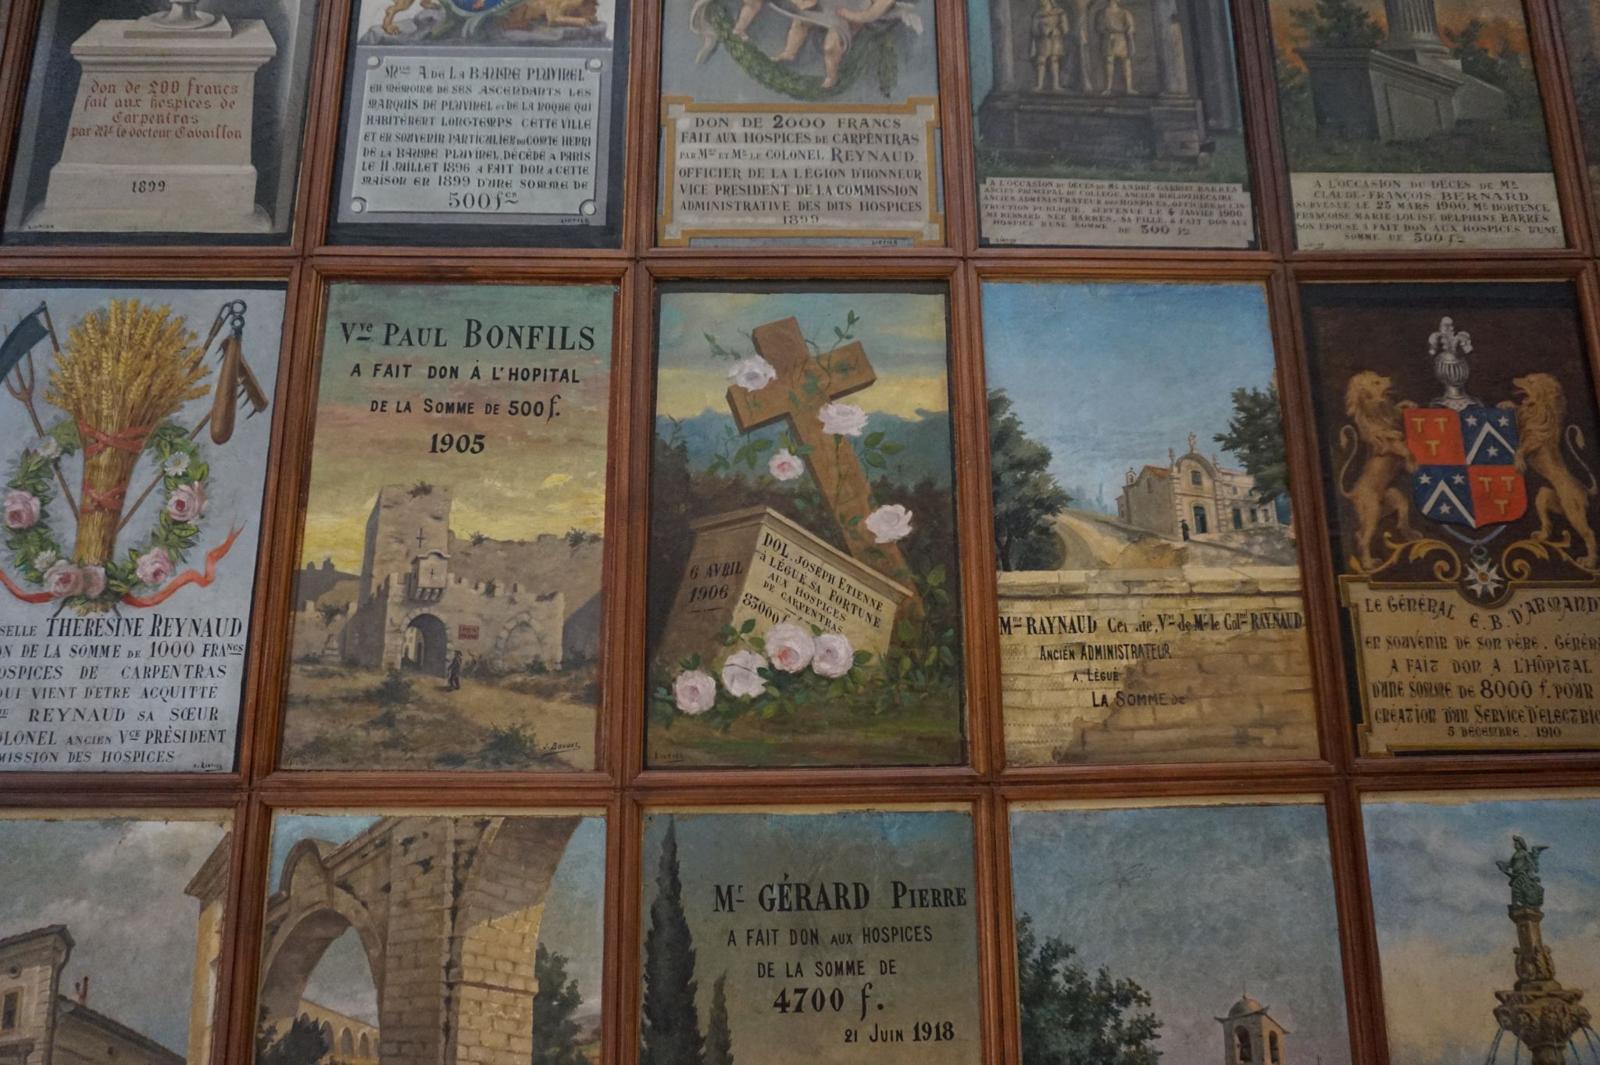 don de 200 francs
fait aux hospices de
Carpentras
par Mr le docteur Cavaillon
1899
A. DE LA BAUME PLUVINEL
EN MÉMOIRE DE SES ASCENDANTS LES
MARQUIS DE PLUVINEL ET DE LA ROQUE QUI
HABITÈRENT LONGTEMPS CETTE VILLE
ET EN SOUVENIR PARTICULIER DU COMTE HENRI
DE LA BAUME PLUVINEL, DÉCÉDÉ A PARIS
LE 11 JUILLET 1896 A FAIT DON A CETTE
MAISON EN 1899 D'UNE SOMME DE
500 frs
DON DE 2000 FRANCS
FAIT AUX HOSPICES DE CARPENTRAS
PAR Mr ET Me LE COLONEL REYNAUD.
OFFICIER DE LA LÉGION D'HONNEUR
VICE PRESIDENT DE LA COMMISSION
ADMINISTRATIVE DES DITS HOSPICES
1899
A L'OCCASION DU DÉCÈS DE Mr ANDRÉ-GABRIEL BARRÈS
ANCIEN PRINCIPAL DU COLLÈGE, ANCIEN BIBLIOTHÉCAIRE
ANCIEN ADMINISTRATEUR DES HOSPICES, OFFICIER DE L'INS
TRUCTION PUBLIQUE, SURVENUE LE 4 JANVIER 1900
Me BERNARD NÉE BARRÈS, SA FILLE, A FAIT DON AUX
HOSPICES D'UNE SOMME DE 500 fs
A L'OCCASION DU DÉCÈS DE Mr
CLAUDE-FRANÇOIS BERNARD
SURVENU LE 23 MARS 1900, Me HORTENCE
FRANÇOISE MARIE LOUISE DELPHINE BARRÈS
SON ÉPOUSE A FAIT DON AUX HOSPICES D'UNE
SOMME DE 500 fs
SELLE THÉRÉSINE REYNAUD
ON DE LA SOMME DE 1000 FRANCS
OSPICES DE CARPENTRAS
QUI VIENT D'ETRE ACQUITTE
REYNAUD SA SŒUR
OLONEL ANCIEN VCE PRÈSIDENT
MISSION DES HOSPICES
Vve PAUL BONFILS
A FAIT DON À L'HOPITAL
DE LA SOMME DE 500 f.
1905
6 AVRIL
1906
DOL JOSEPH ETIENNE
à LÉGUÉ SA FORTUNE
AUX HOSPICES
DE CARPENTRAS
83000 f
Mme RAYNAUD Vve de Mr le Colnel RAYNAUD
ANCIEN ADMINISTRATEUR
A LÉGUÉ
LA SOMME de
LE GÉNÉRAL E.B. D'ARMAND
EN SOUVENIR DE SON PÈRE, GÉNÉR
A FAIT DON A L'HÔPITAL
D'UNE SOMME DE 8000 f. POUR
CRÉATION D'UN SERVICE D'ELECTRIC
5 DÉCEMBRE 1910
Mr GÉRARD PIERRE
A FAIT DON AUX HOSPICES
DE LA SOMME DE
4700 f.
21 JUIN 1918